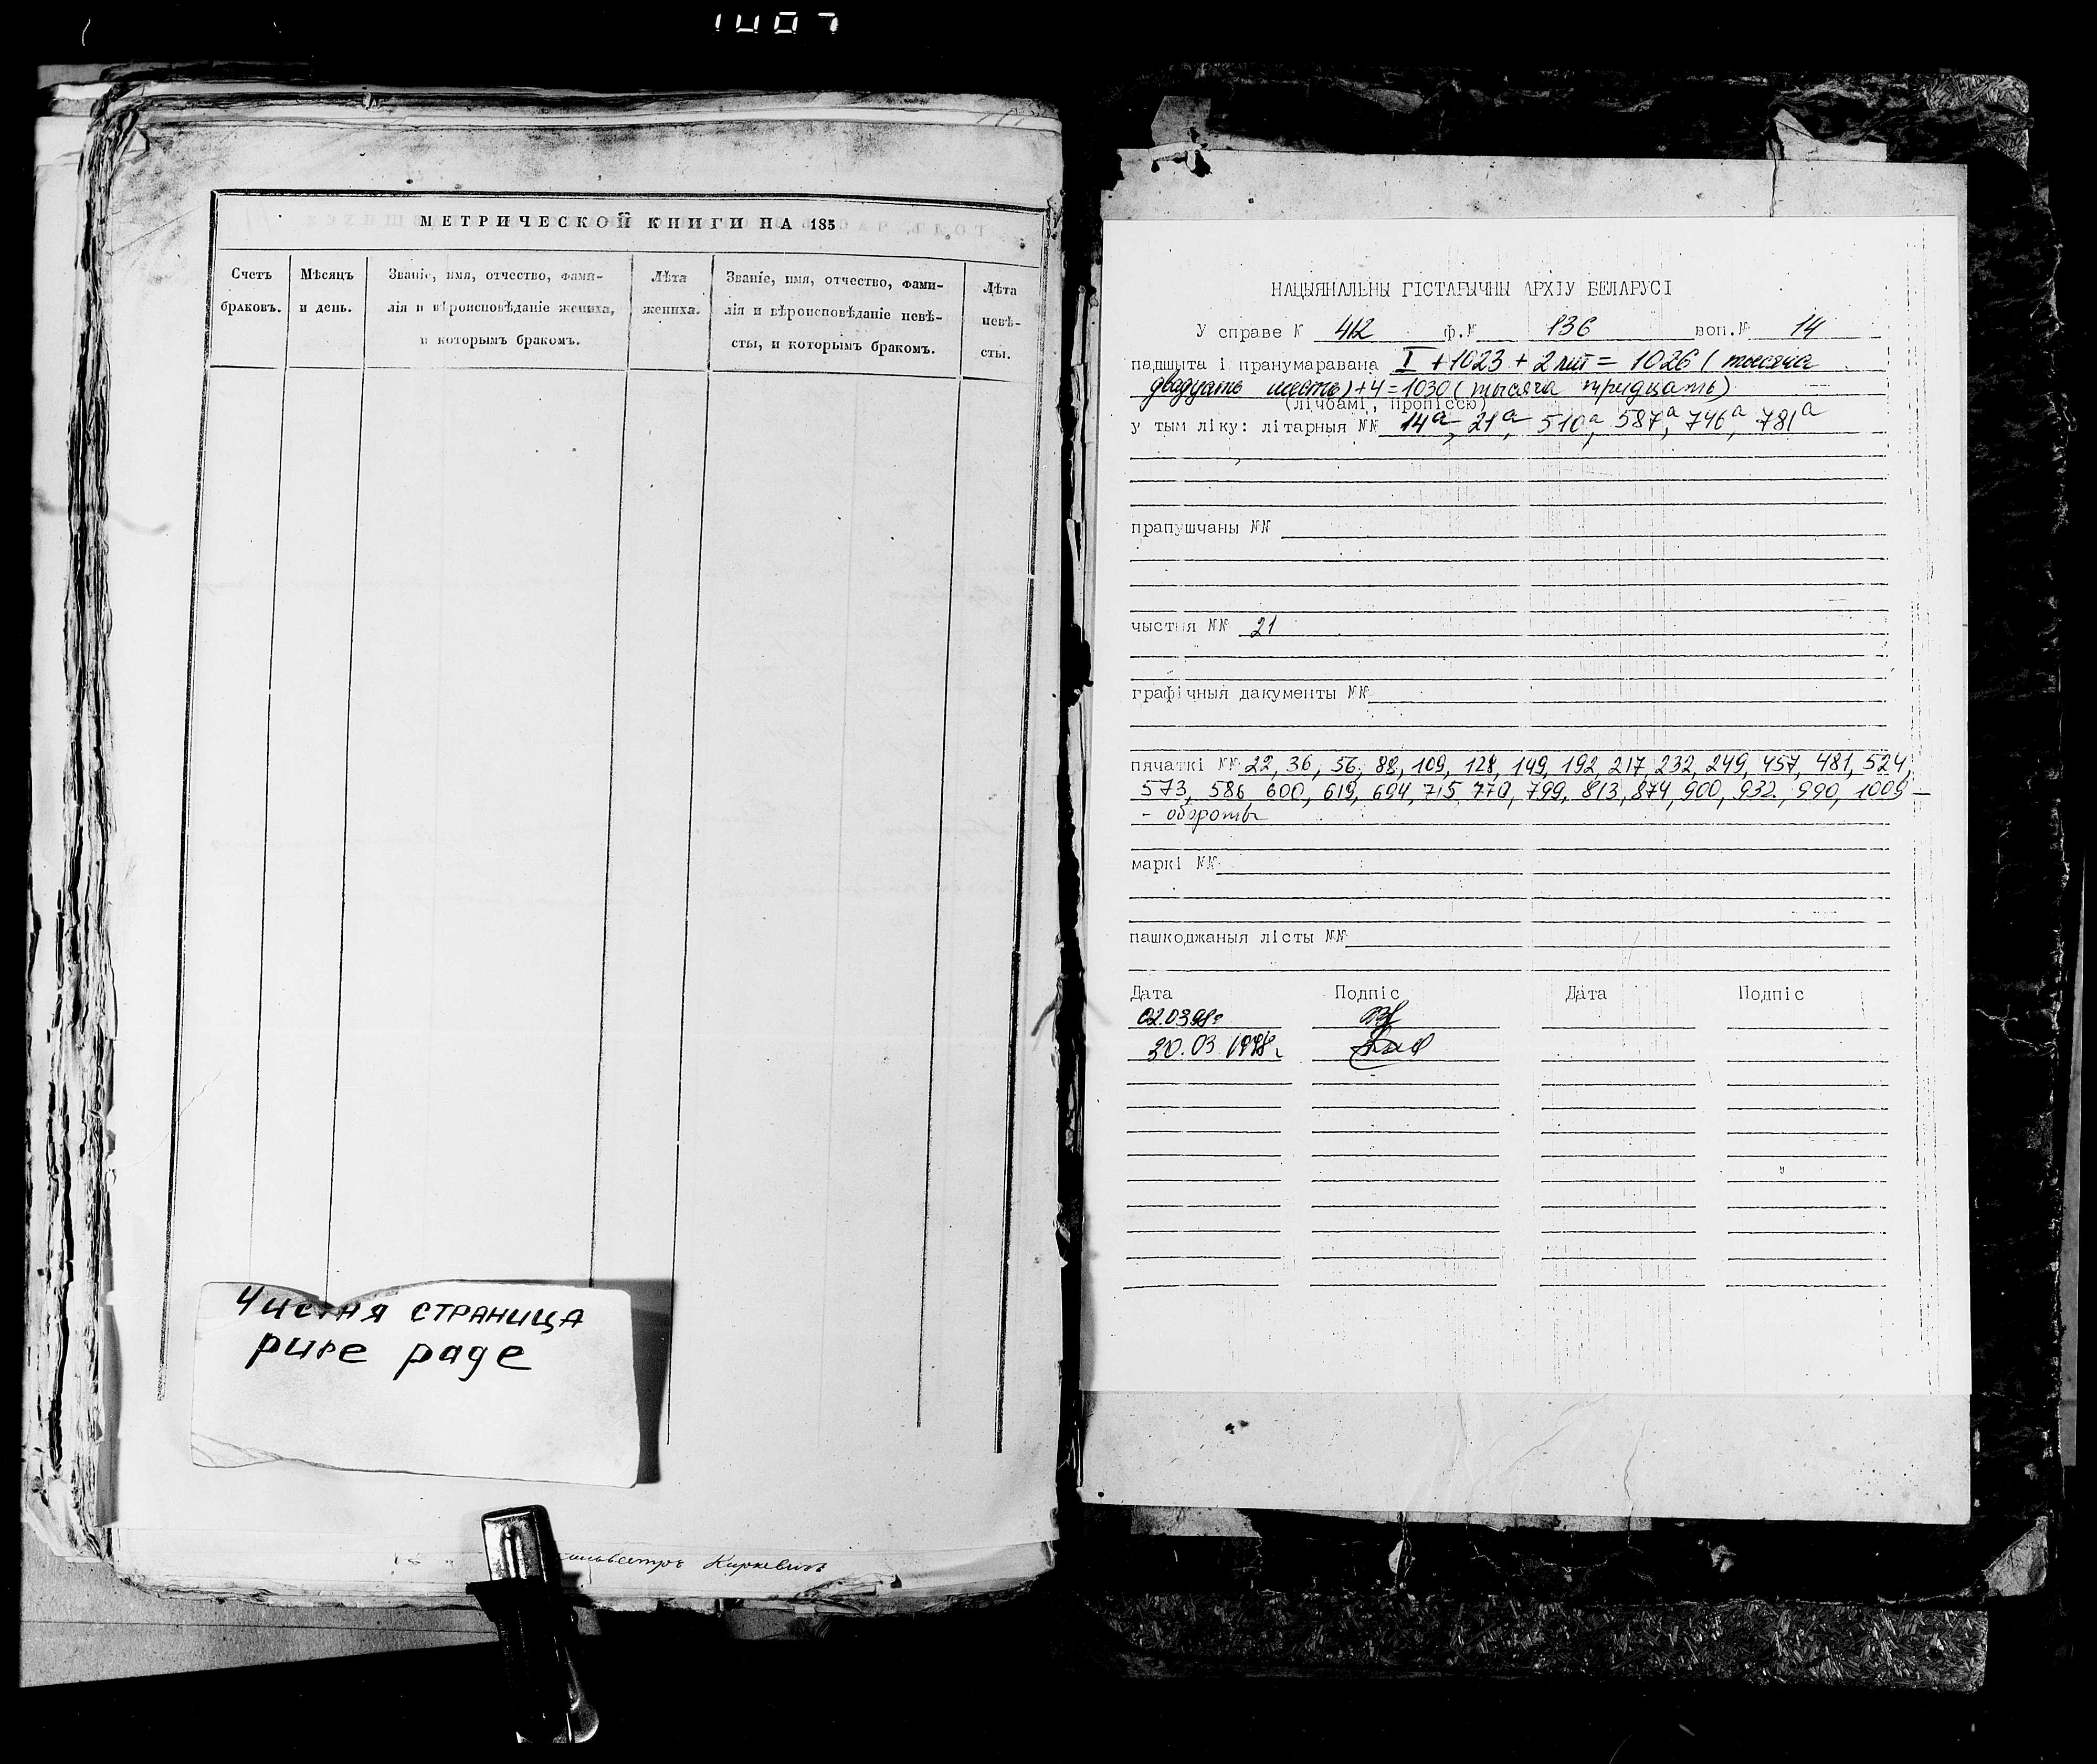 1007
МЕТРИЧЕСКОЙ КНИГИ НА 185
Счетъ браковъ.
Мѣсяцъ и день.
Званіе, имя, отчество, фами-
лія и вѣроисповѣданіе жениха,
и которымъ бракомъ.
Лѣта жениха.
Званіе, имя, отчество, фами-
лія и вѣроисповѣданіе невѣ-
сты, и которымъ бракомъ.
Лѣта невѣ-
сты.
Чистая страница
pure page
Киркевичъ
НАЦЫЯНАЛЬНЫ ГІСТАРЫЧНЫ АРХІЎ БЕЛАРУСІ
У справе № 412 ф.№ 136 воп.№ 14
падшыта і пранумаравана I + 1023 + 2 лит = 1026 ( тысяча
двадцать шесть) + 4 = 1030 ( тысяча тридцать)
(лічбамі, пропіссю)
у тым ліку: літарныя №№ 14а, 21а, 510а, 587а, 746а, 781а
прапушчаны №№
чыстыя №№ 21
графічныя дакументы №№
пячаткі №№ 22, 36, 56, 88, 109, 128, 149, 192, 217, 232, 249, 457, 481, 524,
573, 586, 600, 619, 694, 715, 770, 799, 813, 874, 900, 932, 990, 1009 -
- обороты
маркі №№
пашкоджаныя лісты №№
Дата Подпіс Дата Подпіс
02.03.98г
30.03.1998г.